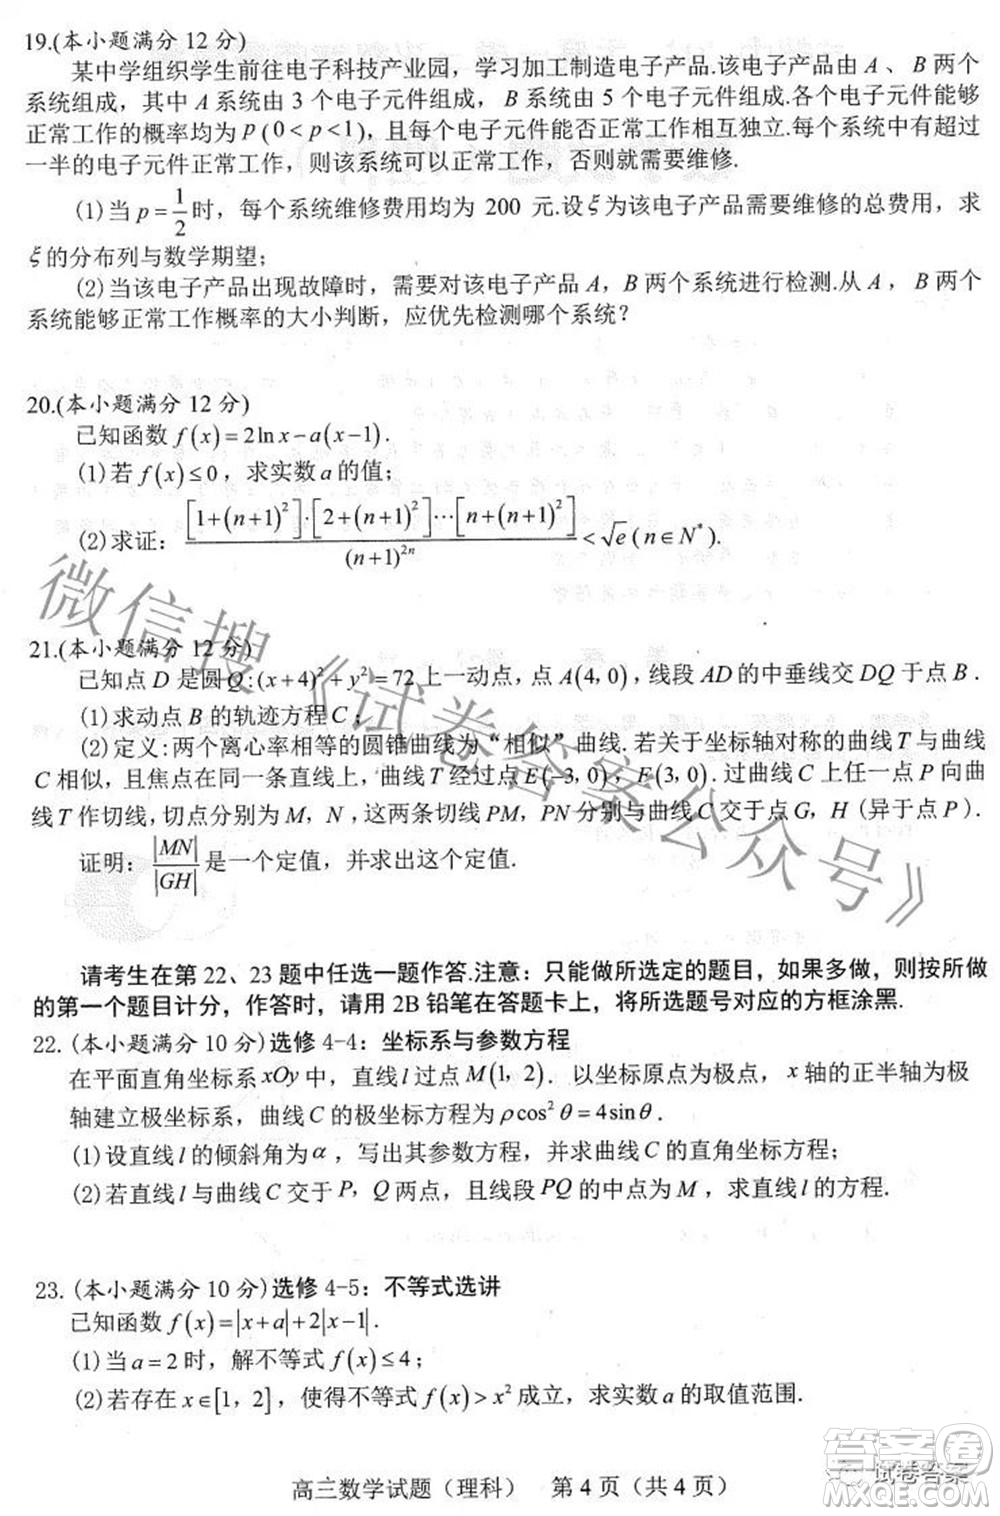 19.(本小题满分 12 分)
某中学组织学生前往电子科技产业园，学习加工制造电子产品.该电子产品由 A 、B 两个
系统组成，其中 A 系统由 3 个电子元件组成，B 系统由 5 个电子元件组成.各个电子元件能够
正常工作的概率均为 p (0<p<1)，且每个电子元件能否正常工作相互独立.每个系统中有超过
一半的电子元件正常工作，则该系统可以正常工作，否则就需要维修.
(1)当 p=1/2 时，每个系统维修费用均为 200 元.设ξ为该电子产品需要维修的总费用，求
ξ的分布列与数学期望；
(2)当该电子产品出现故障时，需要对该电子产品 A，B 两个系统进行检测.从 A， B 两个
系统能够正常工作概率的大小判断，应优先检测哪个系统？
20.(本小题满分 12 分)
已知函数 f(x)=2ln x−a(x−1).
(1)若 f(x)≤0，求实数 a 的值；
(2)求证：[1+(n+1)²]·[2+(n+1)²]···[n+(n+1)²]/(n+1)²ⁿ<√e (n∈N*).
21.(本小题满分 12 分)
已知点 D 是圆 Q:(x+4)²+y²=72 上一动点，点 A(4，0)，线段 AD 的中垂线交 DQ 于点 B .
(1)求动点 B 的轨迹方程 C；
(2)定义:两个离心率相等的圆锥曲线为“相似”曲线. 若关于坐标轴对称的曲线 T 与曲线
C 相似，且焦点在同一条直线上，曲线 T 经过点 E(−3，0)，E(3，0). 过曲线 C 上任一点 P 向曲
线 T 作切线，切点分别为 M，N，这两条切线 PM，PN 分别与曲线 C 交于点 G，H (异于点 P ).
证明：|MN|/|GH| 是一个定值，并求出这个定值.
请考生在第 22、23 题中任选一题作答.注意：只能做所选定的题目，如果多做，则按所做
的第一个题目计分，作答时，请用 2B 铅笔在答题卡上，将所选题号对应的方框涂黑.
22. (本小题满分 10 分)选修 4-4：坐标系与参数方程
在平面直角坐标系 xOy 中，直线 l 过点 M(1，2). 以坐标原点为极点，x 轴的正半轴为极
轴建立极坐标系，曲线 C 的极坐标方程为 ρcos²θ=4sinθ .
(1)设直线 l 的倾斜角为 α ，写出其参数方程，并求曲线 C 的直角坐标方程；
(2)若直线 l 与曲线 C 交于 P，Q 两点，且线段 PQ 的中点为 M ，求直线 l 的方程.
23. (本小题满分 10 分)选修 4-5：不等式选讲
已知函数 f(x)=|x+a|+2|x−1| .
(1)当 a=2 时，解不等式 f(x)≤4；
(2)若存在 x∈[1，2]，使得不等式 f(x)>x² 成立，求实数 a 的取值范围.
高三数学试题（理科） 第 4 页（共 4 页）
微信搜《试卷答案公众号》
试卷答案
答案圈
MXQE.COM